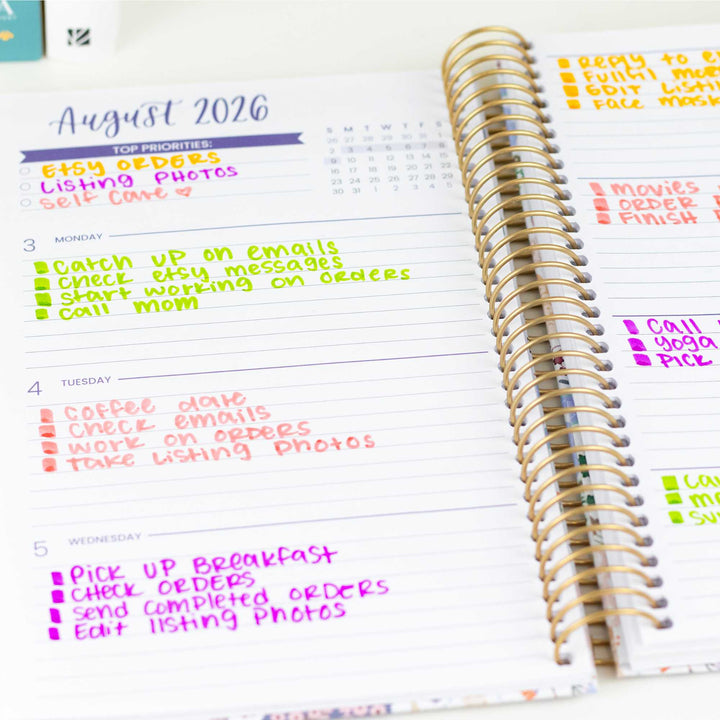 August 2026
TOP PRIORITIES:
ETSY ORDERS
LISTING PHOTOS
Self Care
S M T W T F S
26 27 28 29 30 31 1
2 3 4 5 6 7 8
9 10 11 12 13 14 15
16 17 18 19 20 21 22
23 24 25 26 27 28 29
30 31 1 2 3 4 5
3 MONDAY
Catch up on emails
Check etsy messages
Start working on orders
Call mom
4 TUESDAY
Coffee date
Check emails
Work on orders
Take listing photos
5 WEDNESDAY
Pick up Breakfast
Check orders
Send completed orders
Edit listing photos
Reply to
Fulfill
Edit
Face
Movies
Order
Finish
Call
Yoga
Pick